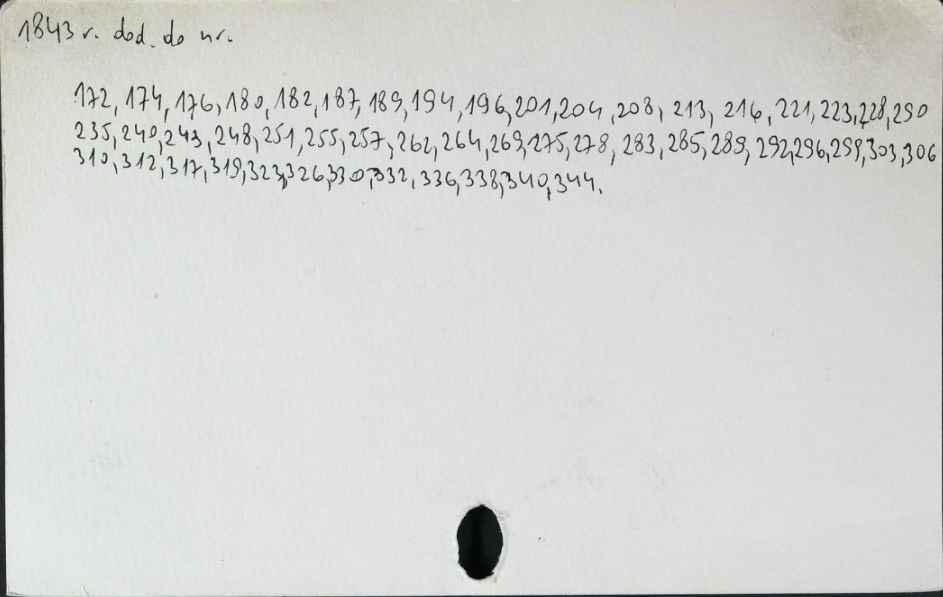 1843 r. dod. do nr.
172, 174, 176, 180, 182, 187, 189, 194, 196, 201, 204, 208, 213, 216, 221, 223, 228, 230
235, 240, 243, 248, 251, 255, 257, 262, 264, 269, 275, 278, 283, 285, 289, 292, 296, 299, 303, 306
310, 312, 317, 319, 323, 326, 330, 332, 336, 338, 340, 344.